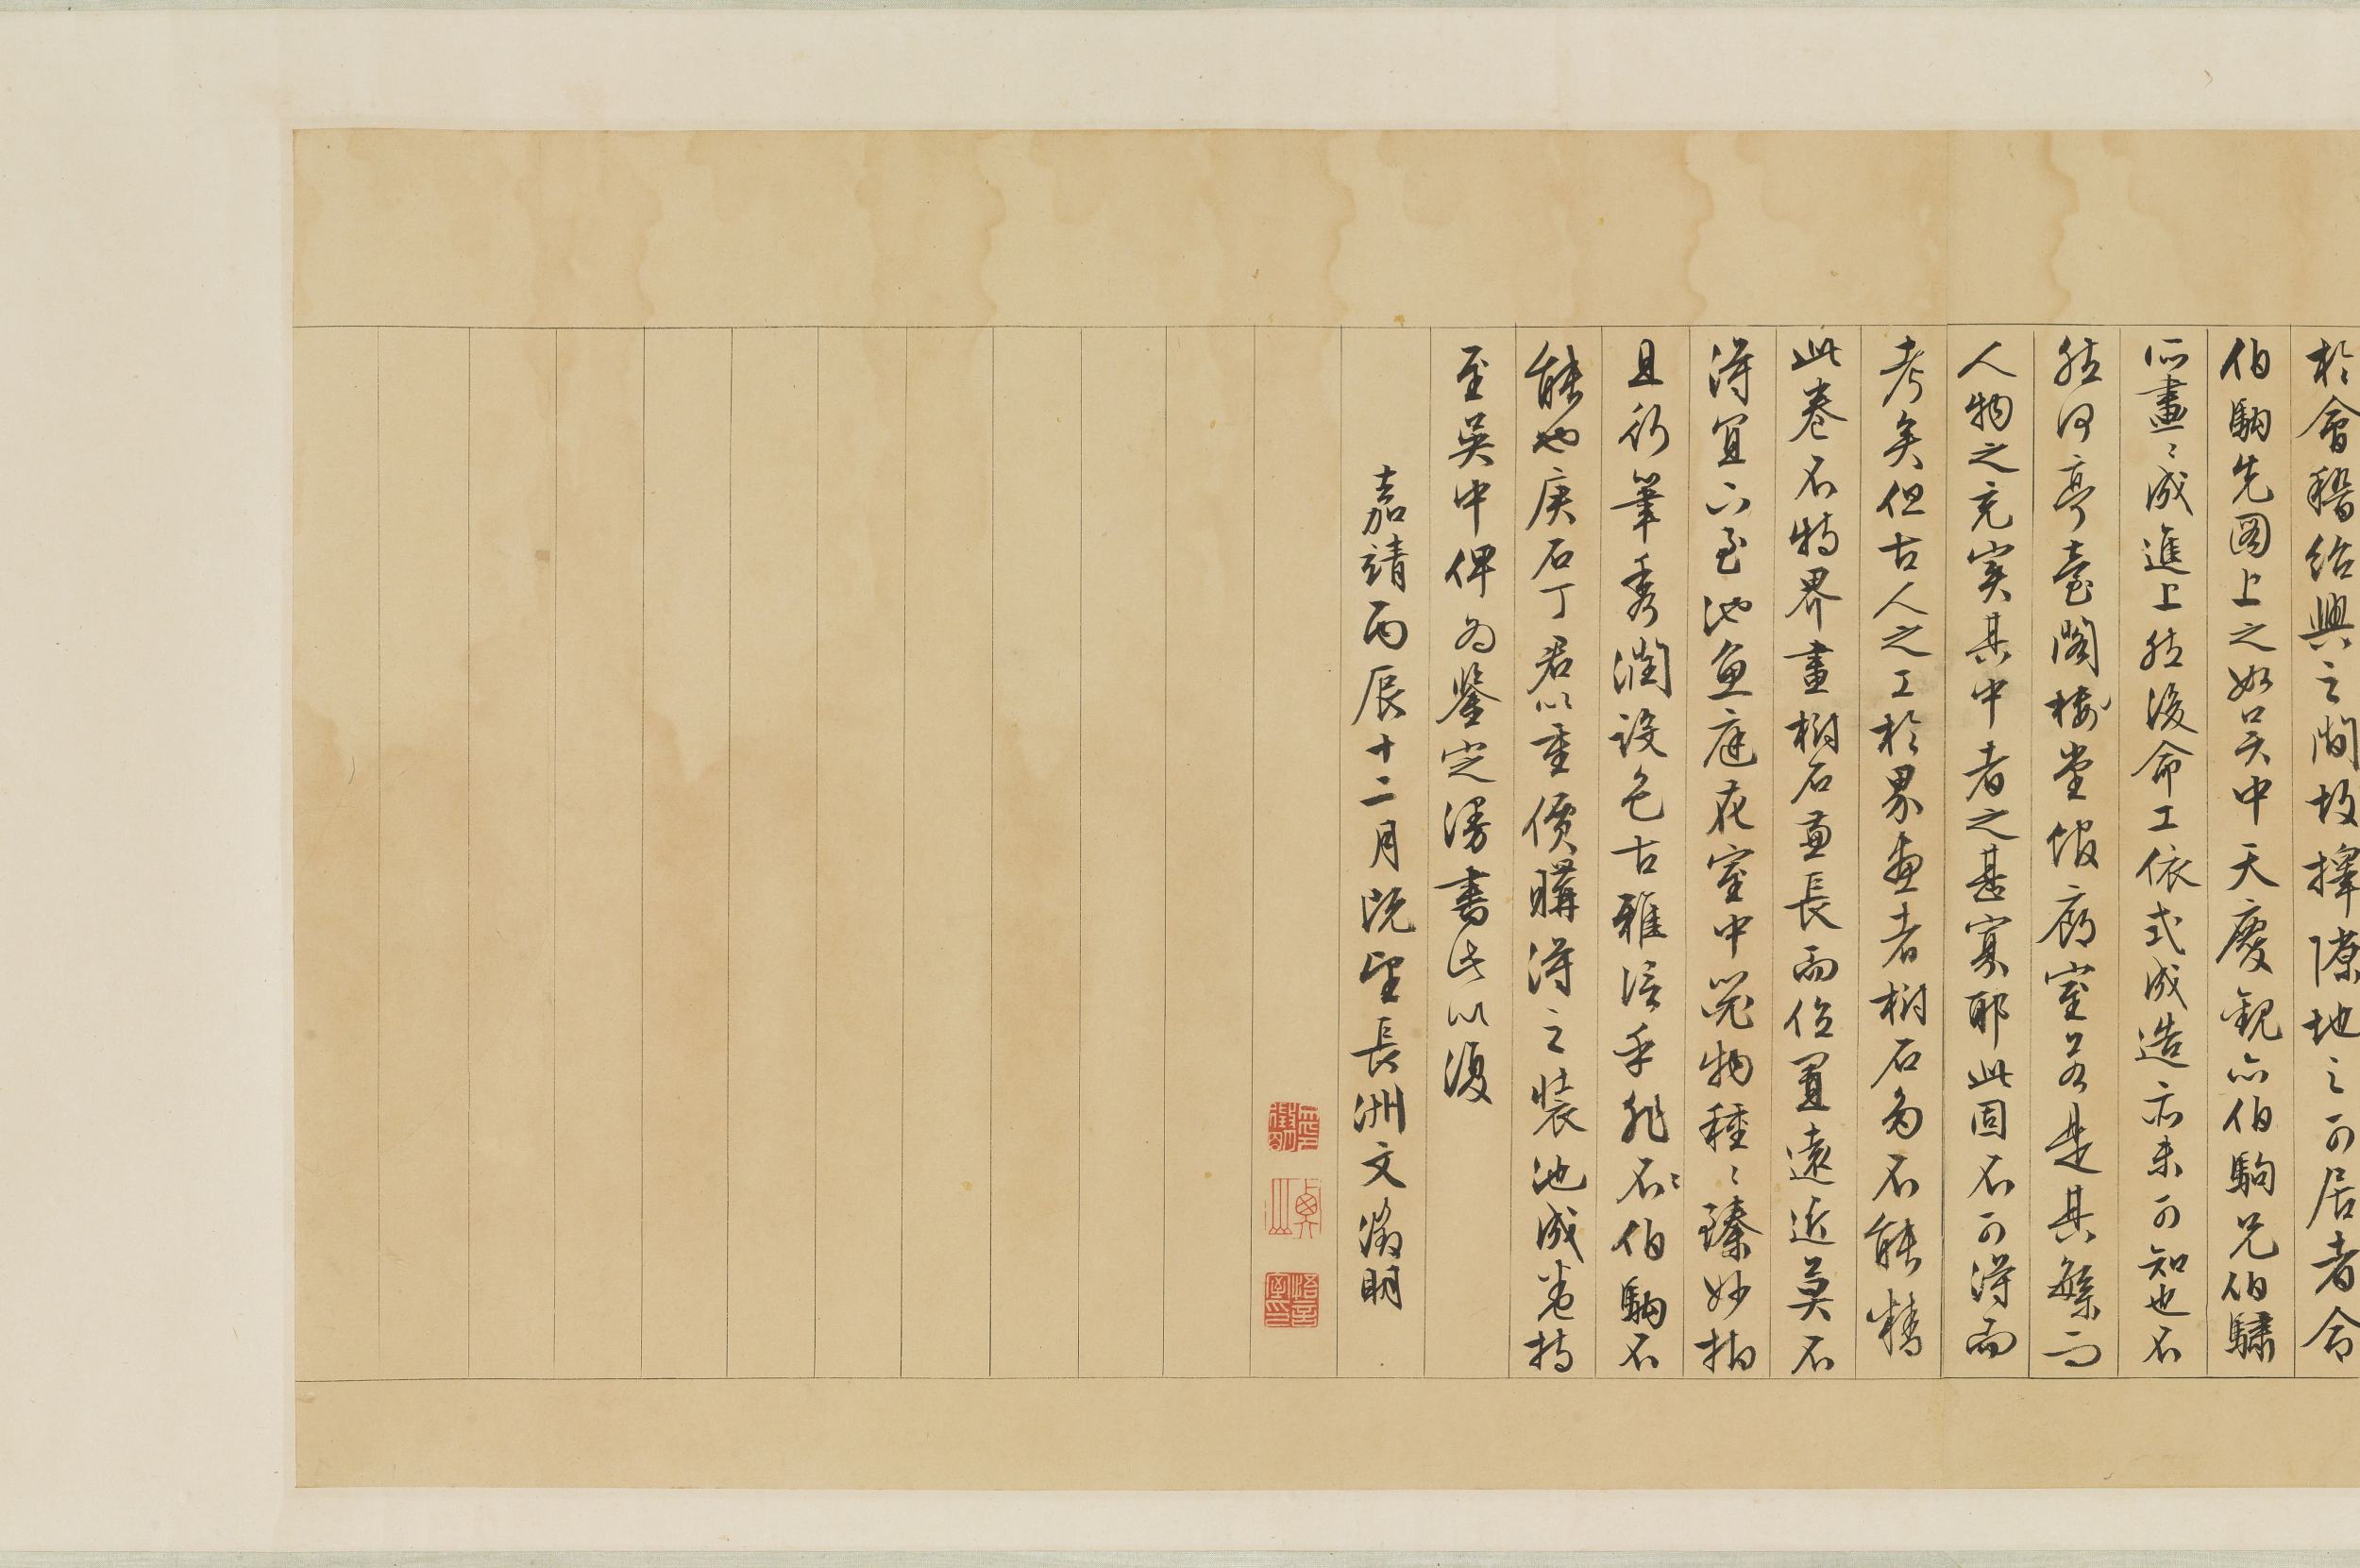 於會稽紹興之間故擇隙地之可居者命
伯駒先圖上之如吳中天慶觀亦伯駒兄伯驌
所畫〻成進上然後命工依式成造亦未可知也不
然何亭臺閣樓堂館廊室若是其繁而
人物之充實其中者之甚寡耶此固不可得而
考矣但古人之工於界畫者樹石多不能精
此卷不特界畫樹石兼長而位置遠近莫不
得宜以至池魚庭花室中器物種〻臻妙抑
且行筆秀潤設色古雅信乎非伯駒不
能也庚石丁君以重價購得之裝池成卷持
至吳中俾為鑒定漫書此以復
嘉靖丙辰十二月既望長洲文徵明
徵明印
悟言室印